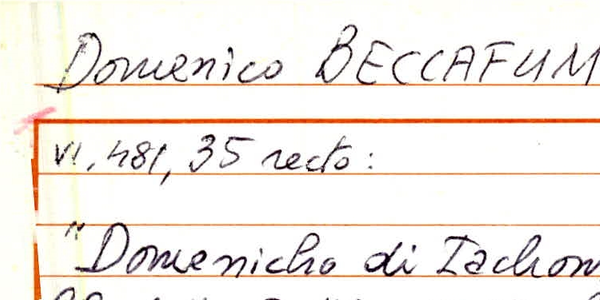 Domenico BECCAFUM
VI, 481, 35 recto:
"Domenicho di Iachom